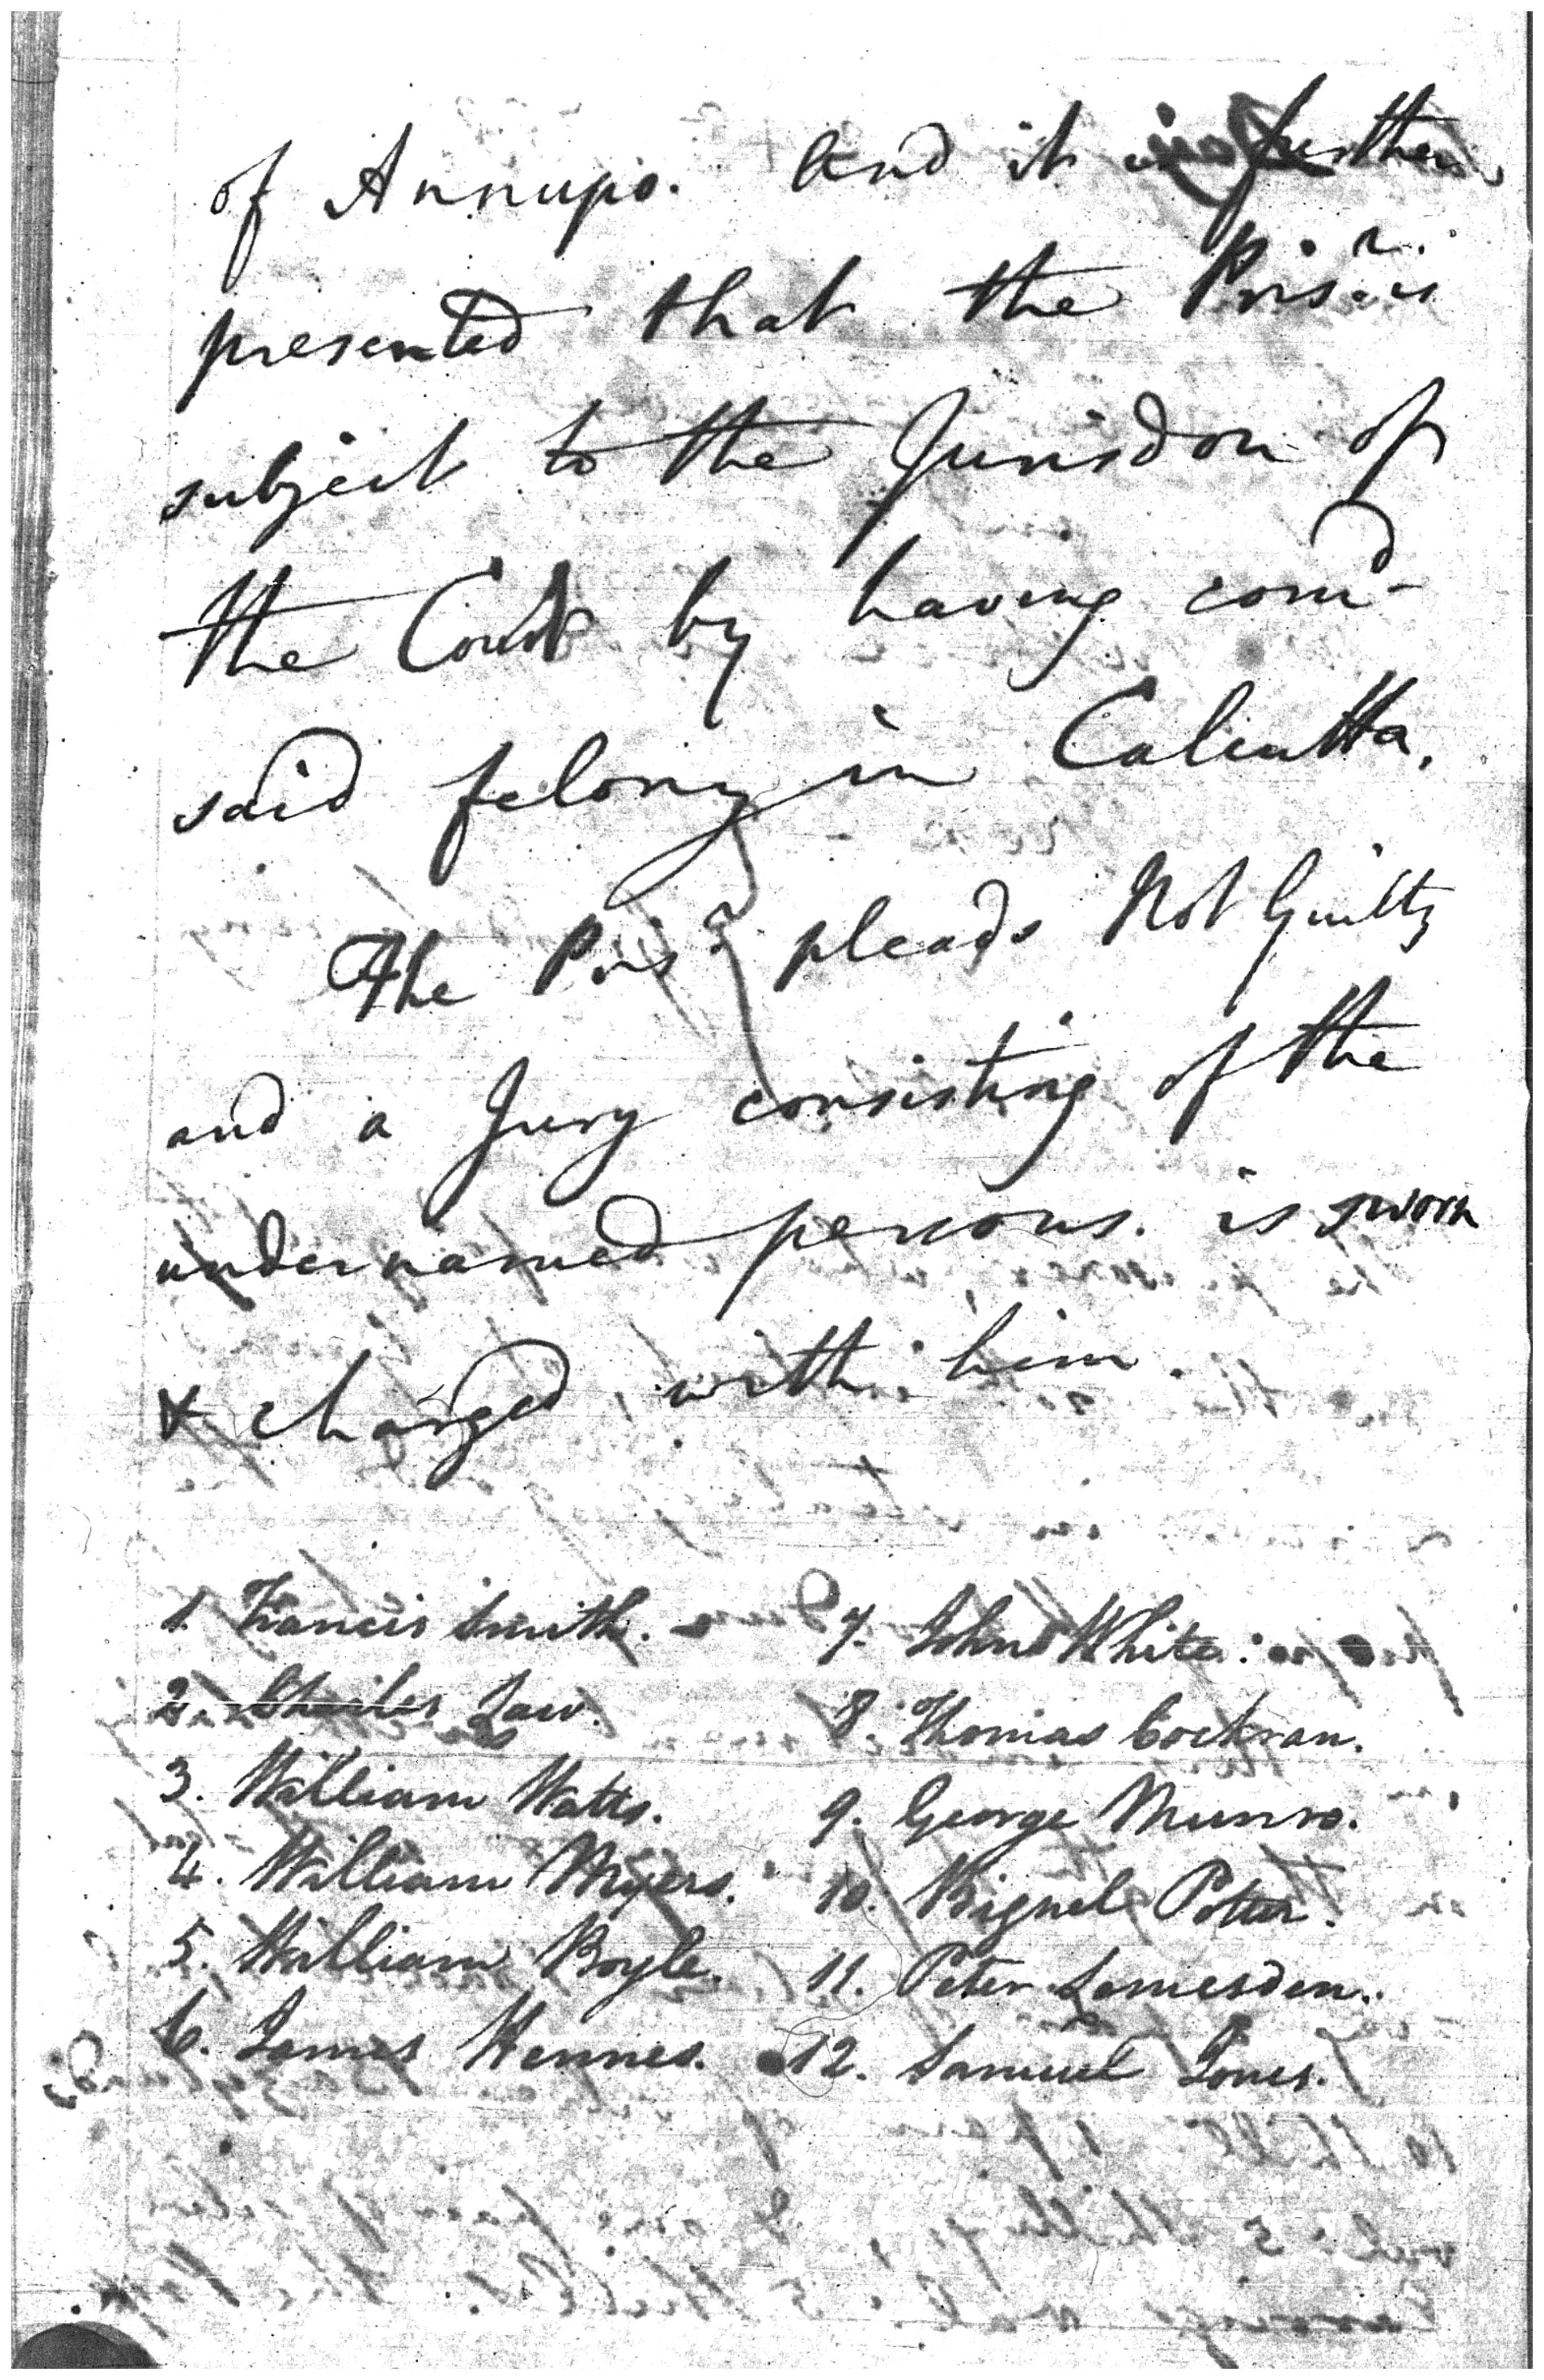 of Annupo. And it is further
presented that the Prisr. is
subject to the Jurisdon of
the Court by having comd
said felony in Calcutta.
The Prisr pleads Not Guilty
and a Jury consisting of the
undernamed persons. is sworn
& charged with him.
1. Francis Smith. 7. John White.
2. Charles Law. 8. Thomas Cockran.
3. William Watts. 9. George Munro.
4. William Myers. 10. Bignel Potter.
5. William Boyle. 11. Peter
6. James 12. Samuel Jones.